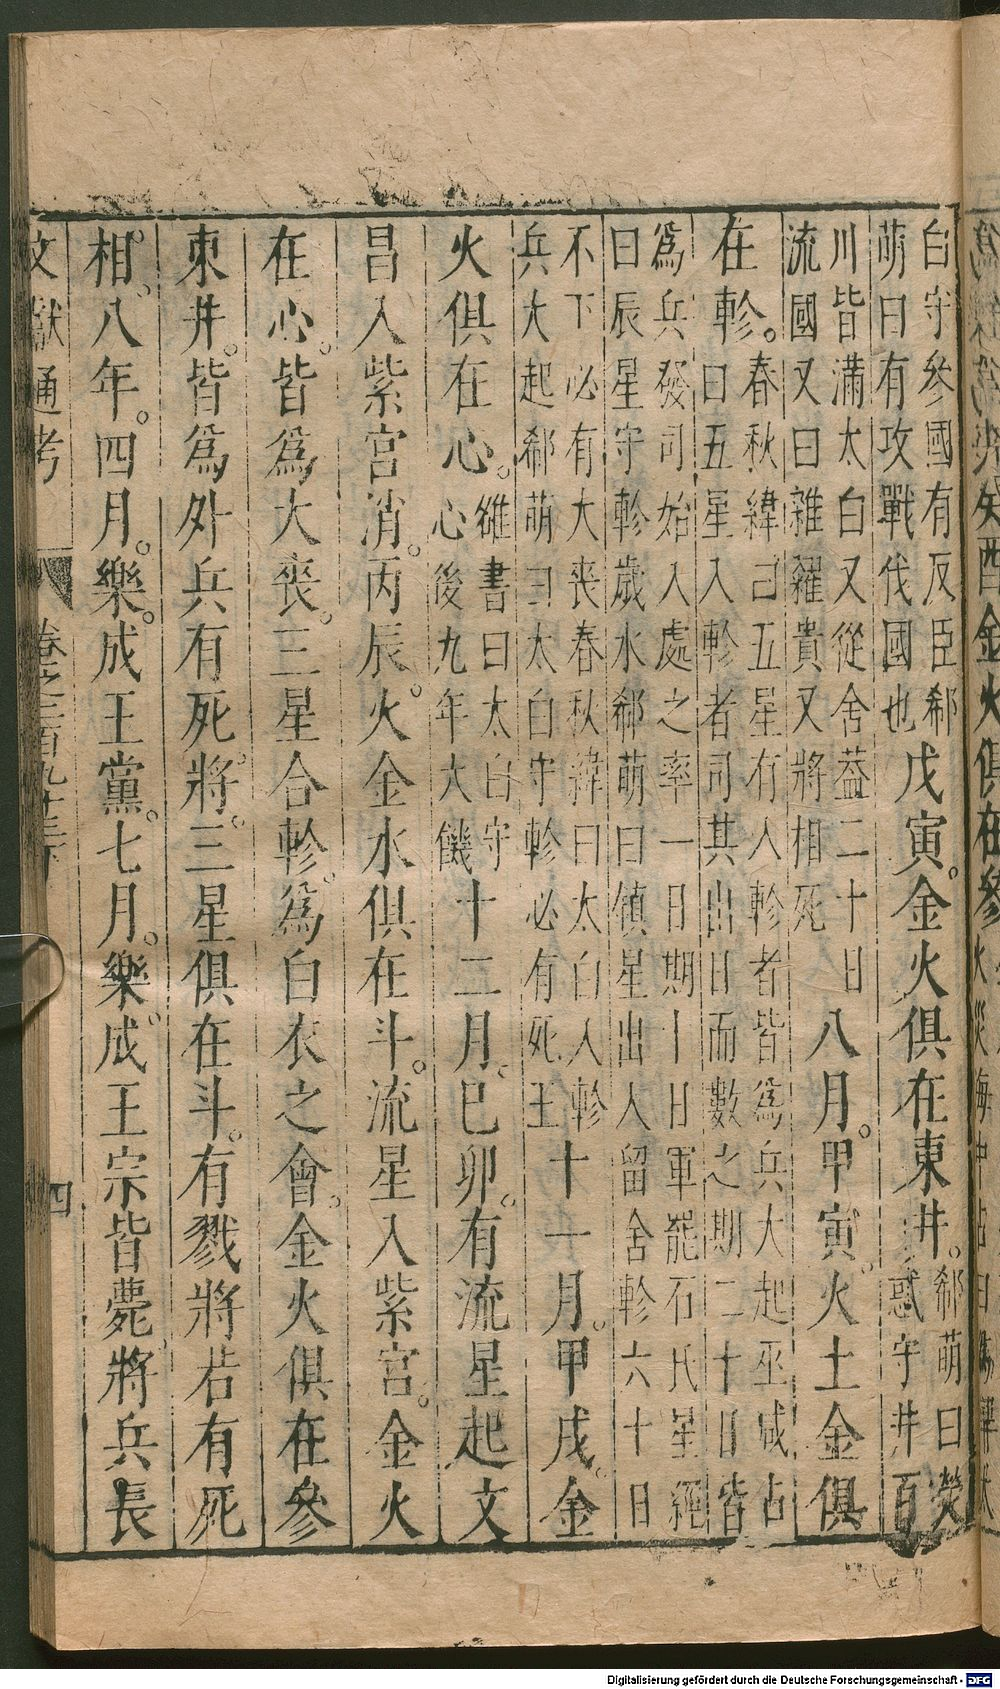 白守參國有反臣郄
萌曰有攻戰伐國也
戊寅。金火俱在東井。
郄萌曰熒
惑守井百
川皆滿太白又從舍蓋二十日
流國又曰雜糴貴又將相死
八月。甲寅。火土金俱
在軫。
春秋緯曰五星有入軫者皆為兵大起巫咸占
曰五星入軫者司其出日而數之期二十日皆
爲兵發司始入處之率一日期十日軍罷石氏星經
曰辰星守軫歲水郄萌曰鎮星出入留舍軫六十日
不下必有大喪春秋緯曰太白入軫
兵大起郄萌曰太白守軫必有死王
十一月。甲戌。金
火俱在心。
雒書曰太白守
心後九年大饑
十二月、巳卯。有流星起文
昌入紫宮消。丙辰。火金水俱在斗。流星入紫宮。金火
在心。皆爲大喪。三星合軫。爲白衣之會。金火俱在參
東井。皆爲外兵有死將。三星俱在斗。有戮將若有死
相。八年。四月。樂。成王黨。七月。樂。成王宗皆薨。將兵長
文獻通考
卷之二百九十三下
四
Digitalisierung gefördert durch die Deutsche Forschungsgemeinschaft - DFG